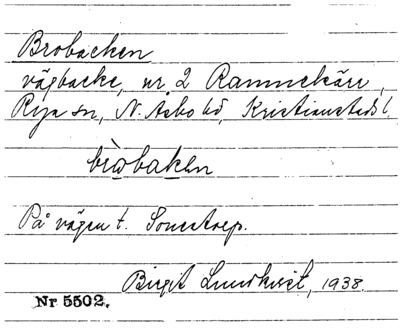 Brobacken
vägbacke, nr 2 Rammekärr,
Rya sn, N. Åsbo hd, Kristianstads l.
bròbaken
På vägen t. Sonstorp.
Birgit Lundkvist, 1938.
Nr 5502.